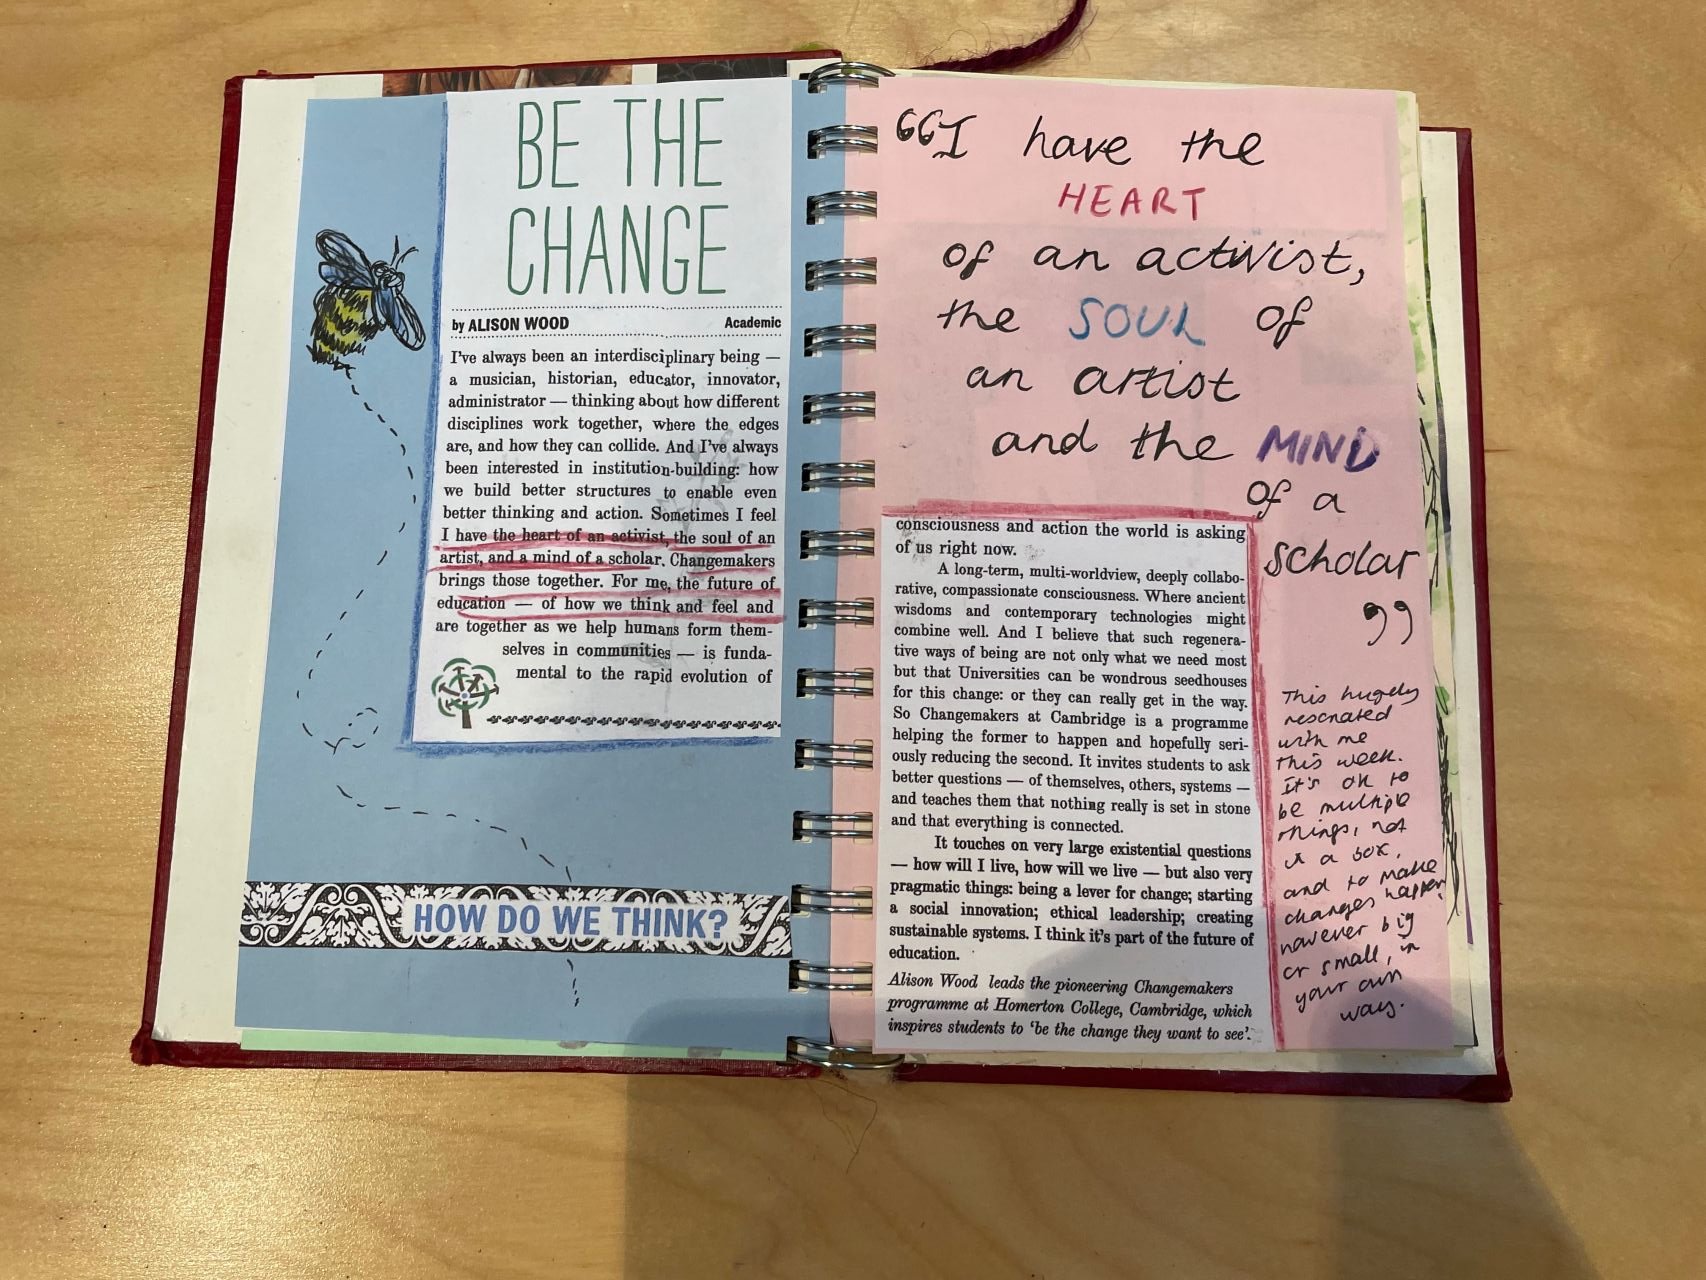 BE THE
CHANGE
by ALISON WOOD Academic
I've always been an interdisciplinary being —
a musician, historian, educator, innovator,
administrator — thinking about how different
disciplines work together, where the edges
are, and how they can collide. And I've always
been interested in institution-building: how
we build better structures to enable even
better thinking and action. Sometimes I feel
I have the heart of an activist, the soul of an
artist, and a mind of a scholar. Changemakers
brings those together. For me, the future of
education — of how we think and feel and
are together as we help humans form them-
selves in communities — is funda-
mental to the rapid evolution of
HOW DO WE THINK?
“I have the
HEART
of an activist,
the SOUL of
an artist
and the MIND
of a
scholar
”
consciousness and action the world is asking
of us right now.
A long-term, multi-worldview, deeply collabo-
rative, compassionate consciousness. Where ancient
wisdoms and contemporary technologies might
combine well. And I believe that such regenera-
tive ways of being are not only what we need most
but that Universities can be wondrous seedhouses
for this change: or they can really get in the way.
So Changemakers at Cambridge is a programme
helping the former to happen and hopefully seri-
ously reducing the second. It invites students to ask
better questions — of themselves, others, systems —
and teaches them that nothing really is set in stone
and that everything is connected.
It touches on very large existential questions
— how will I live, how will we live — but also very
pragmatic things: being a lever for change; starting
a social innovation; ethical leadership; creating
sustainable systems. I think it's part of the future of
education.
Alison Wood leads the pioneering Changemakers
programme at Homerton College, Cambridge, which
inspires students to 'be the change they want to see'.
This hugely
resonated
with me
this week.
It's ok to
be multiple
things, not
in a box,
and to make
changes happen,
however big
or small, in
your own
way.